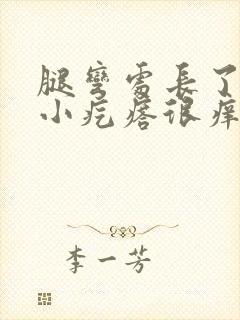 腿彎處長了
小疙瘩很癢
李一芳